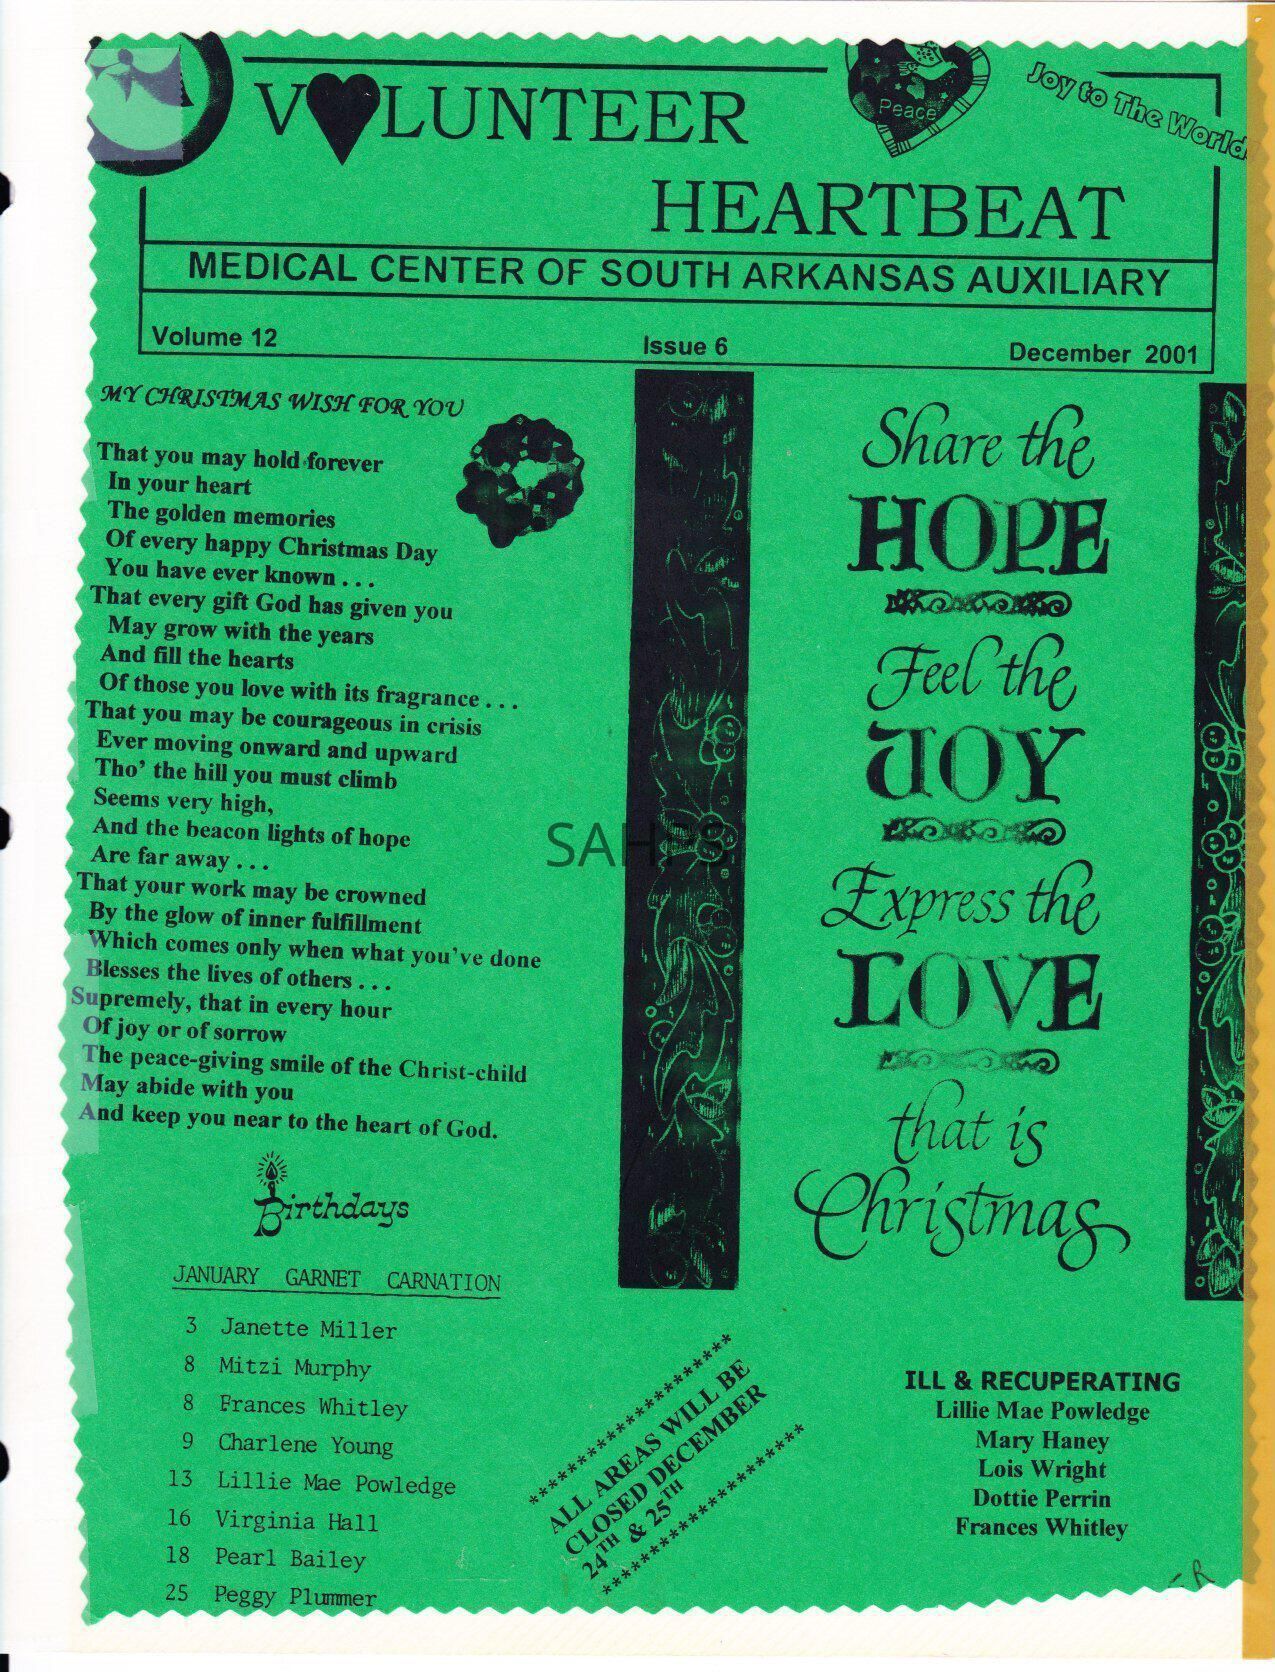 VOLUNTEER
Peace
Joy to The World
HEARTBEAT
MEDICAL CENTER OF SOUTH ARKANSAS AUXILIARY
Volume 12 Issue 6 December 2001
MY CHRISTMAS WISH FOR YOU
That you may hold forever
In your heart
The golden memories
Of every happy Christmas Day
You have ever known . . .
That every gift God has given you
May grow with the years
And fill the hearts
Of those you love with its fragrance . . .
That you may be courageous in crisis
Ever moving onward and upward
Tho' the hill you must climb
Seems very high,
And the beacon lights of hope
Are far away . . .
That your work may be crowned
By the glow of inner fulfillment
Which comes only when what you've done
Blesses the lives of others . . .
Supremely, that in every hour
Of joy or of sorrow
The peace-giving smile of the Christ-child
May abide with you
And keep you near to the heart of God.
Share the
HOPE
Feel the
JOY
Express the
LOVE
that is
Christmas
SAHPS
Birthdays
JANUARY GARNET CARNATION
3 Janette Miller
8 Mitzi Murphy
8 Frances Whitley
9 Charlene Young
13 Lillie Mae Powledge
16 Virginia Hall
18 Pearl Bailey
25 Peggy Plummer
************************
ALL AREAS WILL BE
CLOSED DECEMBER
24TH & 25TH
************************
ILL & RECUPERATING
Lillie Mae Powledge
Mary Haney
Lois Wright
Dottie Perrin
Frances Whitley